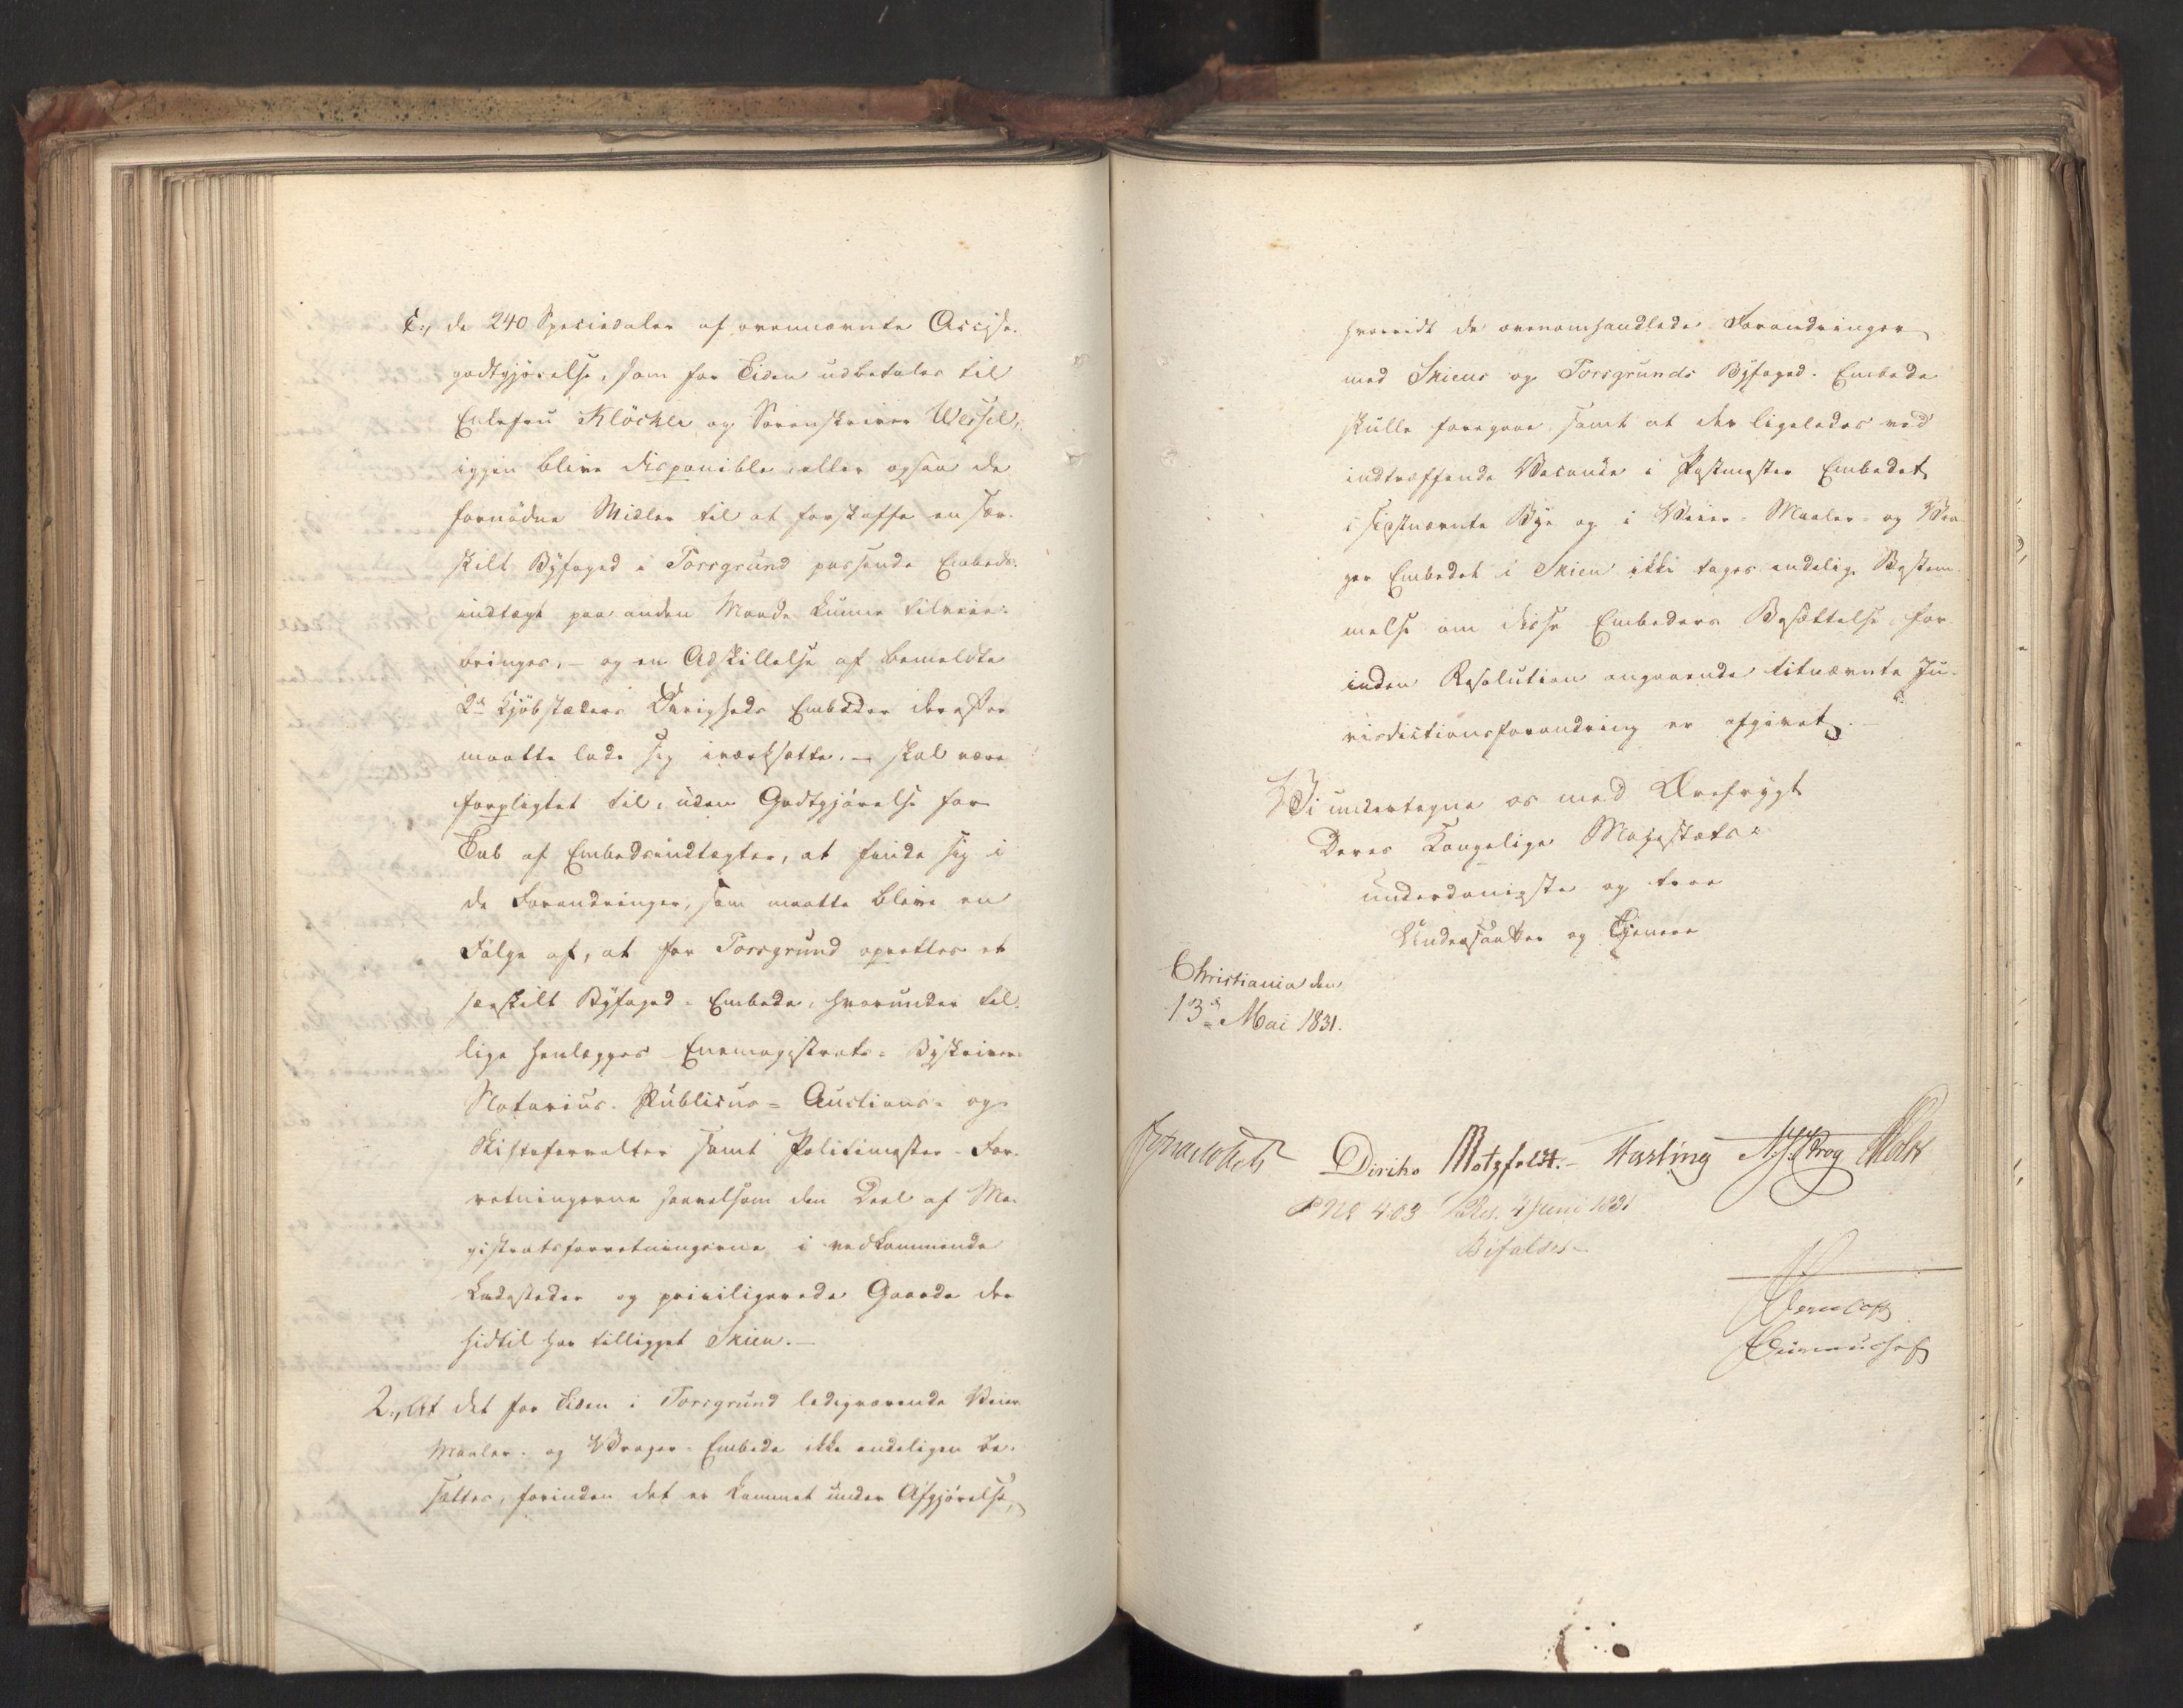 c., de 240 Speciedaler af ovennævnte Accise-
godtgjørelse, som for Tiden udbetales til
Enkefru Klöcker og Sorenskriver Wessel,
igjen blive disponible eller ogsaa de
fornødne Midler til at forskaffe en sær-
skilt Byfoged i Porsgrund passende Embeds-
indtægt paa anden Maade kunne tilveie-
bringes, – og en Adskillelse af bemeldte
2de Kjøbstæders Øvrigheds Embeder derefter
maatte lade sig iværksætte, – skal være
forpligtet til, uden Godtgjørelse for
Tab af Embedsindtægter, at finde sig i
de Forandringer, som maatte blive en
Følge af, at for Porsgrund oprettes et
særskilt Byfoged-Embede, hvorunder til-
lige henlægges Enemagistrats- Byskriver-
Notarius- Publicus- Auctions- og
Skifteforvalter samt Politimester-For-
retningerne saavelsom den Deel af Ma-
gistratsforretningerne i vedkommende
Ladesteder og priviligerede Gaarde der
hidtil har tilligget Skien. –
2., At det for Tiden i Porsgrund ledigværende Veier
Maaler- og Vrager-Embede ikke endeligen be-
sættes, forinden det er kommet under Afgjørelse,
hvorvidt de ovenomhandlede Forandringer
med Skiens og Porsgrunds Byfoged-Embede
skulle foregaae, samt at der ligeledes ved
indtræffende Vacance i Postmester Embedet
i sidstnævnte Bye og i Veier- Maaler- og Vra-
ger Embedet i Skien ikke tages endelig Bestem-
melse om disse Embeders Besættelse, for-
inden Resolution angaaende titnævnte Ju-
risdictionsforandring er afgivet. –
Vi undertegne os med Ærefrygt
Deres Kongelige Majestæts
underdanigste og troe
Undersaatter og Tjenere
Christiania den
13de Mai 1831.
Diriks Motzfeldt. Fasting Krog Holst
No 403 Res. 4 Juni 1831
Bifaldes